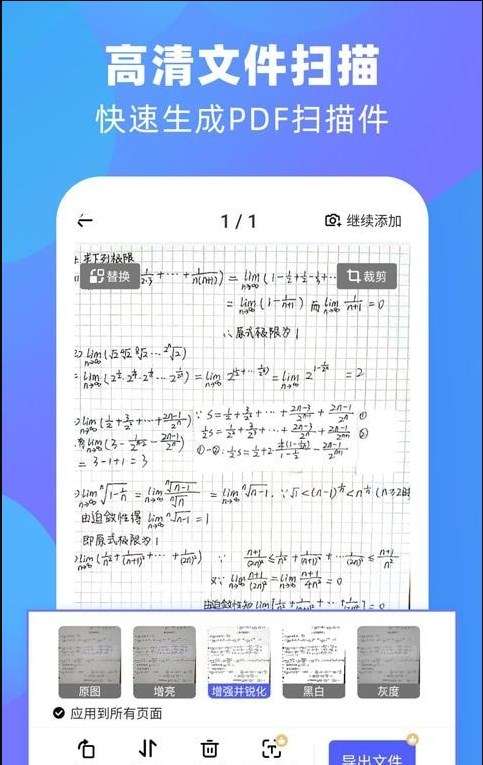 高清文件扫描
快速生成PDF扫描件
1/1
继续添加
求下列极限
替换
裁剪
1/2·3 + ··· + 1/n(n+1)) = lim n→∞ (1 - 1/2 + 1/2 - 1/3 + ···
= lim n→∞ (1 - 1/n+1) 而 lim n→∞ 1/n+1 = 0
∴ 原式极限为1
lim n→∞ (√2 ∜2 ∛2 ··· 2ⁿ√2)
= lim n→∞ (2^½ · 2^¼ · 2^⅛ ··· 2^(1/2ⁿ)) = lim n→∞ 2^(½+···+1/2ⁿ) = lim n→∞ 2^(1-1/2ⁿ) = 2
lim n→∞ (1/2 + 3/2² + ··· + 2n-1/2ⁿ) ∵ S = 1/2 + 3/2² + ··· + 2n-3/2ⁿ⁻¹ + 2n-1/2ⁿ ①
½S = 1/2² + 3/2³ + ··· + 2n-3/2ⁿ + 2n-1/2ⁿ⁺¹ ②
= 3-1+1 = 3
①-②: ½S = 1/2 + 2·
lim n→∞ ⁿ√(1-1/n) = lim n→∞ ⁿ√(n-1)/ⁿ√n = lim n→∞ ⁿ√(n-1) ∵ √1 < (n-1)^(1/n) < n^(1/n) (n≥2时
由迫敛性得 lim n→∞ ⁿ√(n-1) = 1
即原式极限为1
lim n→∞ (1/n² + 1/(n+1)² + ··· + 1/(2n)²) ∵ n+1/(2n)² ≤ 1/n² + 1/(n+1)² + ··· 1/(2n)² ≤ n+1/n²
又∵ lim n→∞ n+1/(2n)² = lim n→∞ n+1/4n² = 0
由迫敛性知 lim [1/n² + 1/(n+1)² + ··· 1/(2n)²] = 0
原图
增亮
增强并锐化
黑白
灰度
应用到所有页面
导出文件